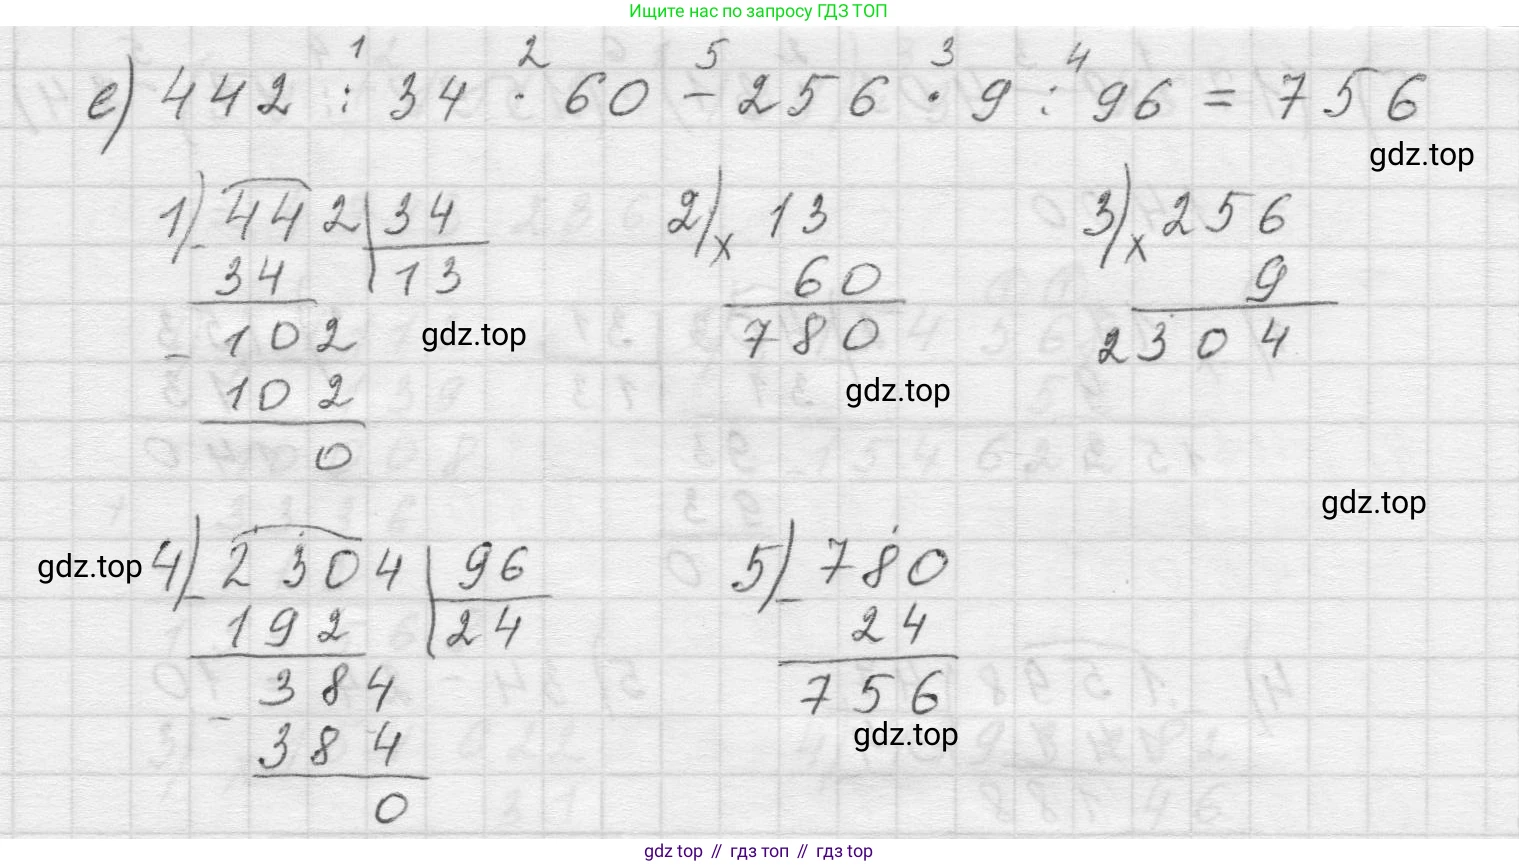 Ищите нас по запросу ГДЗ ТОП
1 2 5 3 4
е) 442 : 34 · 60 - 256 · 9 : 96 = 756
gdz.top
1) - 442 | 34
34 | 13
- 102
102
0
gdz.top
2) x 13
60
780
gdz.top
3) x 256
9
2304
gdz.top
gdz.top
4) - 2304 | 96
192 | 24
- 384
384
0
5) - 780
24
756
gdz.top
gdz top // гдз топ // гдз top